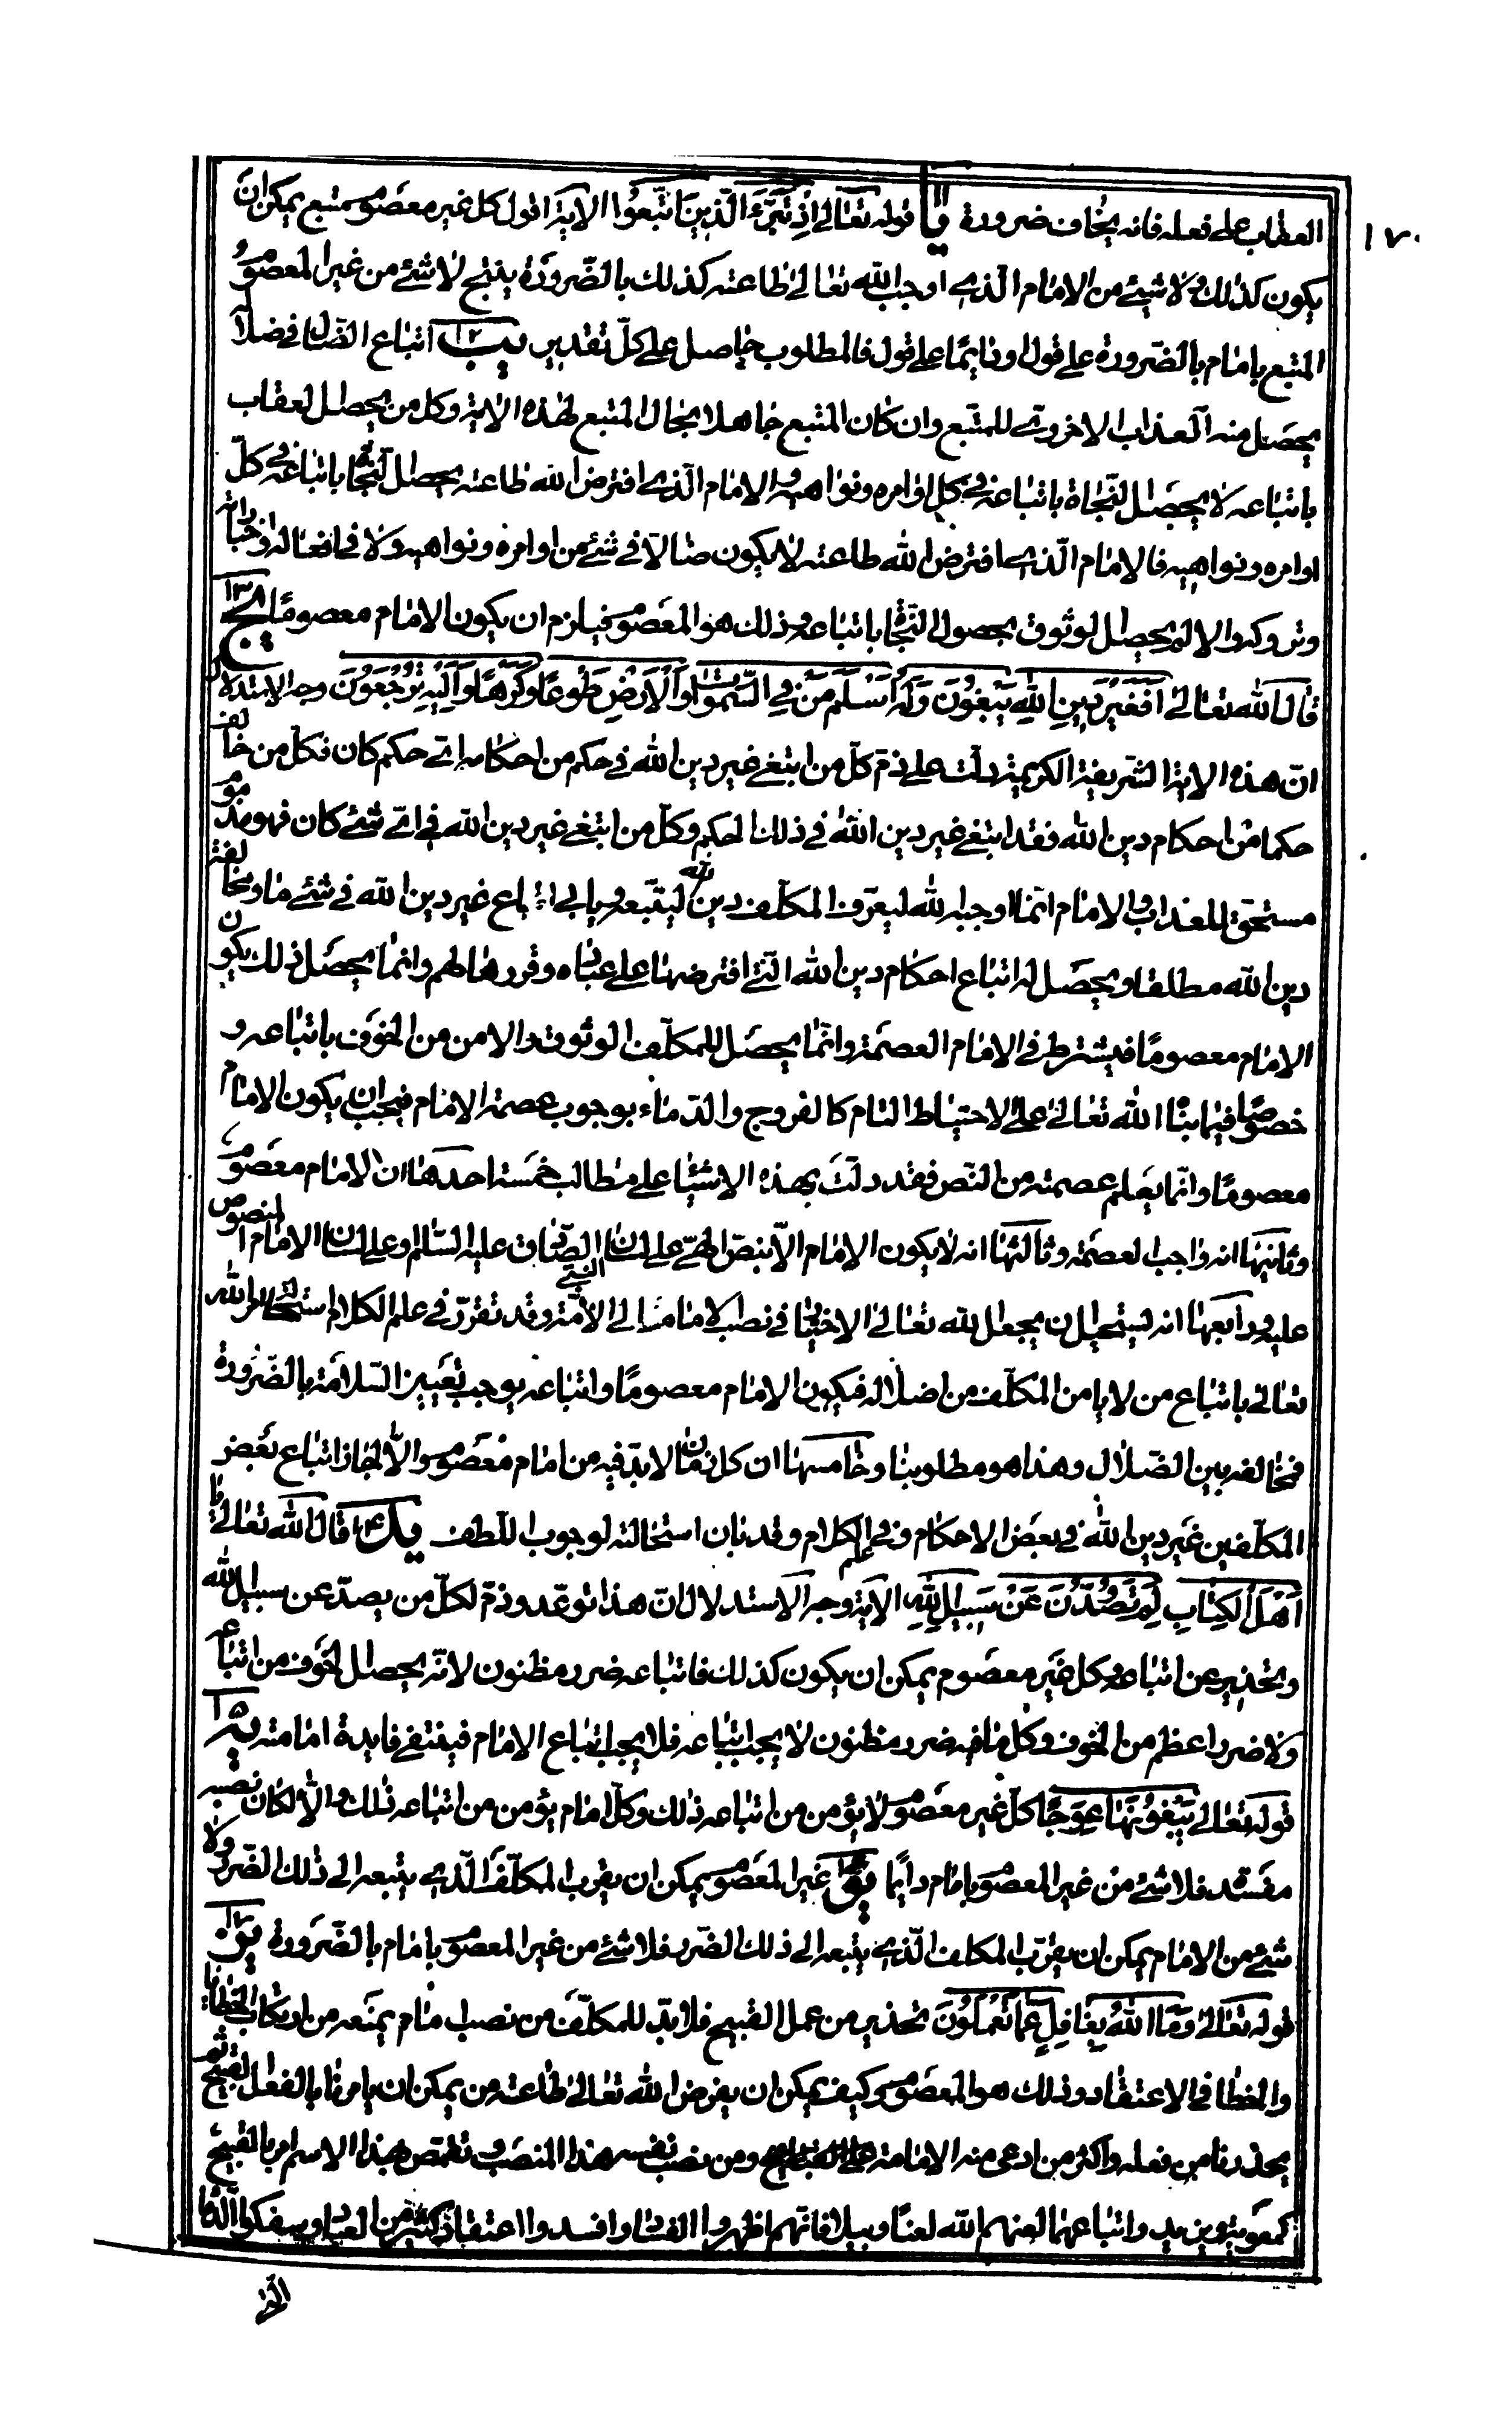 ١٧٠
العقاب على فعله فانه يخاف ضرورة يا١١ قوله تعالى اذ تبرء الذين اتبعوا الاية اقول كل غير معصوم متبع يمكن ان
يكون كذلك ولا شيئ من الامام الذى اوجب الله تعالى طاعته كذلك بالضرورة ينتج لا شئ من غير المعصوم
المتبع بامام بالضرورة على قول ودائما على قول فالمطلوب حاصل على كل تقدير يب١٢ اتباع الضال فى ضلاله
يحصل منه العذاب الاخروى للمتبع وان كان المتبع جاهلا بحال المتبع لهذه الاية وكل من يحصل العقاب
باتباعه لا يحصل النجاة باتباعه فى كل اوامره ونواهيه والامام الذى افترض الله طاعته يحصل النجاة باتباعه فى كل
اوامره ونواهيه فالامام الذى افترض الله طاعته لا يكون ضالا فى شئ من اوامره ونواهيه ولا فى افعاله واخباراته
وتروكه والا لم يحصل الوثوق بحصول النجاة باتباعه وذلك هو المعصوم فيلزم ان يكون الامام معصوما يج١٣
قال الله تعالى افغير دين الله يبغون وله اسلم من فى السموات والارض طوعا وكرها واليه يرجعون وجه الاستدلال
ان هذه الاية الشريفة الكريمة دلت على ذم كل من ابتغى غير دين الله فى حكم من احكامه اى حكم كان فكل من خالف
حكما من احكام دين الله فقد ابتغى غير دين الله فى ذلك الحكم وكل من ابتغى غير دين الله فى اى شئ كان فهو مذموم
مستحق للعذاب والامام انما اوجبه الله ليعرف المكلف دين الله ليتبعه ويابى اتباع غير دين الله فى شئ ما ومخالفة
دين الله مطلقا ويحصل له اتباع احكام دين الله التى افترضها على عباده وقررها لهم وانما يحصل ذلك بكون
الامام معصوما فيشترط فى الامام العصمة وانما يحصل للمكلف الوثوق والامن من الخوف باتباعه و
خصوصا فيما بنا الله تعالى على الاحتياط التام كالفروج والدماء بوجوب عصمة الامام فيجب ان يكون الامام
معصوما وانما يعلم عصمته من النص فقد دلت بهذه الاشياء على مطالب خمسة احدها ان الامام معصوم
وثانيها انه واجب العصمة وثالثها انه لا يكون الامام الا بنص الهى على لسان النبى الصادق عليه السلم وعلى لسان الامام المنصوص
عليه ورابعها انه يستحيل ان يجعل الله تعالى الاختيار فى نصب الامام منا الى الامة وقد تقرر فى علم الكلام استحالة امر الله
تعالى باتباع من لا يامن المكلف من اضلاله فيكون الامام معصوما واتباعه يوجب تعيين السلامة بالضرورة
فمخالفه بين الضلال وهذا هو مطلوبنا وخامسها ان كل زمان لا بد فيه من امام معصوم والا لجاز اتباع بعض
المكلفين غير دين الله فى بعض الاحكام وفى علم الكلام وقد بان استحالته لوجوب اللطف يد١٤ قال الله تعالى يا
اهل الكتاب لم تصدون عن سبيل الله الاية وجه الاستدلال ان هذا توعد وذم لكل من يصد عن سبيل الله
وتحذير عن اتباعه وكل غير معصوم يمكن ان يكون كذلك فاتباعه ضرر مظنون لانه يحصل الخوف من اتباعه
ولا ضرر اعظم من الخوف وكل ما فيه ضرر مظنون لا يجب اتباعه فلا يجب اتباع الامام فينتفى فايدة امامته يه١٥
قوله تعالى يبغونها عوجا كل غير معصوم لا يؤمن من اتباعه ذلك وكل امام يؤمن من اتباعه ذلك والا لكان نصبه
مفسدة فلا شئ من غير المعصوم بامام دايما يو١٦ غير المعصوم يمكن ان يقرب المكلف الذى يتبعه الى ذلك الضرر ولا
شئ من الامام يمكن ان يقرب المكلف الذى يتبعه الى ذلك الضرر فلا شئ من غير المعصوم بامام بالضرورة يز١٧
قوله تعالى وما الله بغافل عما تعملون تحذير من عمل القبيح فلا بد للمكلف من نصب امام يمنعه من ارتكاب الخطايا
والخطا فى الاعتقاد وذلك هو المعصوم وكيف يمكن ان يفرض الله تعالى طاعته من يمكن ان يامرنا بالفعل القبيح ثم
يحذرنا من فعله واكثر من ادعى منه الامامة ومن نصب نفسه هذا المنصب وتقمص بهذا الاسم امر بالقبيح
كمعوية ويزيد واتباعهما لعنهم الله لعنا وبيلا فانهم اظهروا الفساد وافسدوا اعتقاد كثير من العباد وسفكوا الدماء